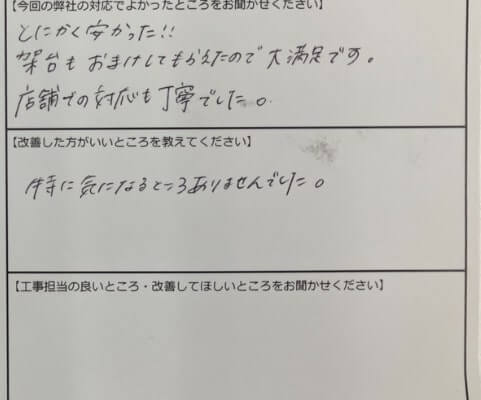 【今回の弊社の対応でよかったところをお聞かせください】
とにかく安かった!!
架台もおまけしてもらえたので大満足です。
店舗での対応も丁寧でした。
【改善した方がいいところを教えてください】
特に気になるところありませんでした。
【工事担当の良いところ・改善してほしいところをお聞かせください】